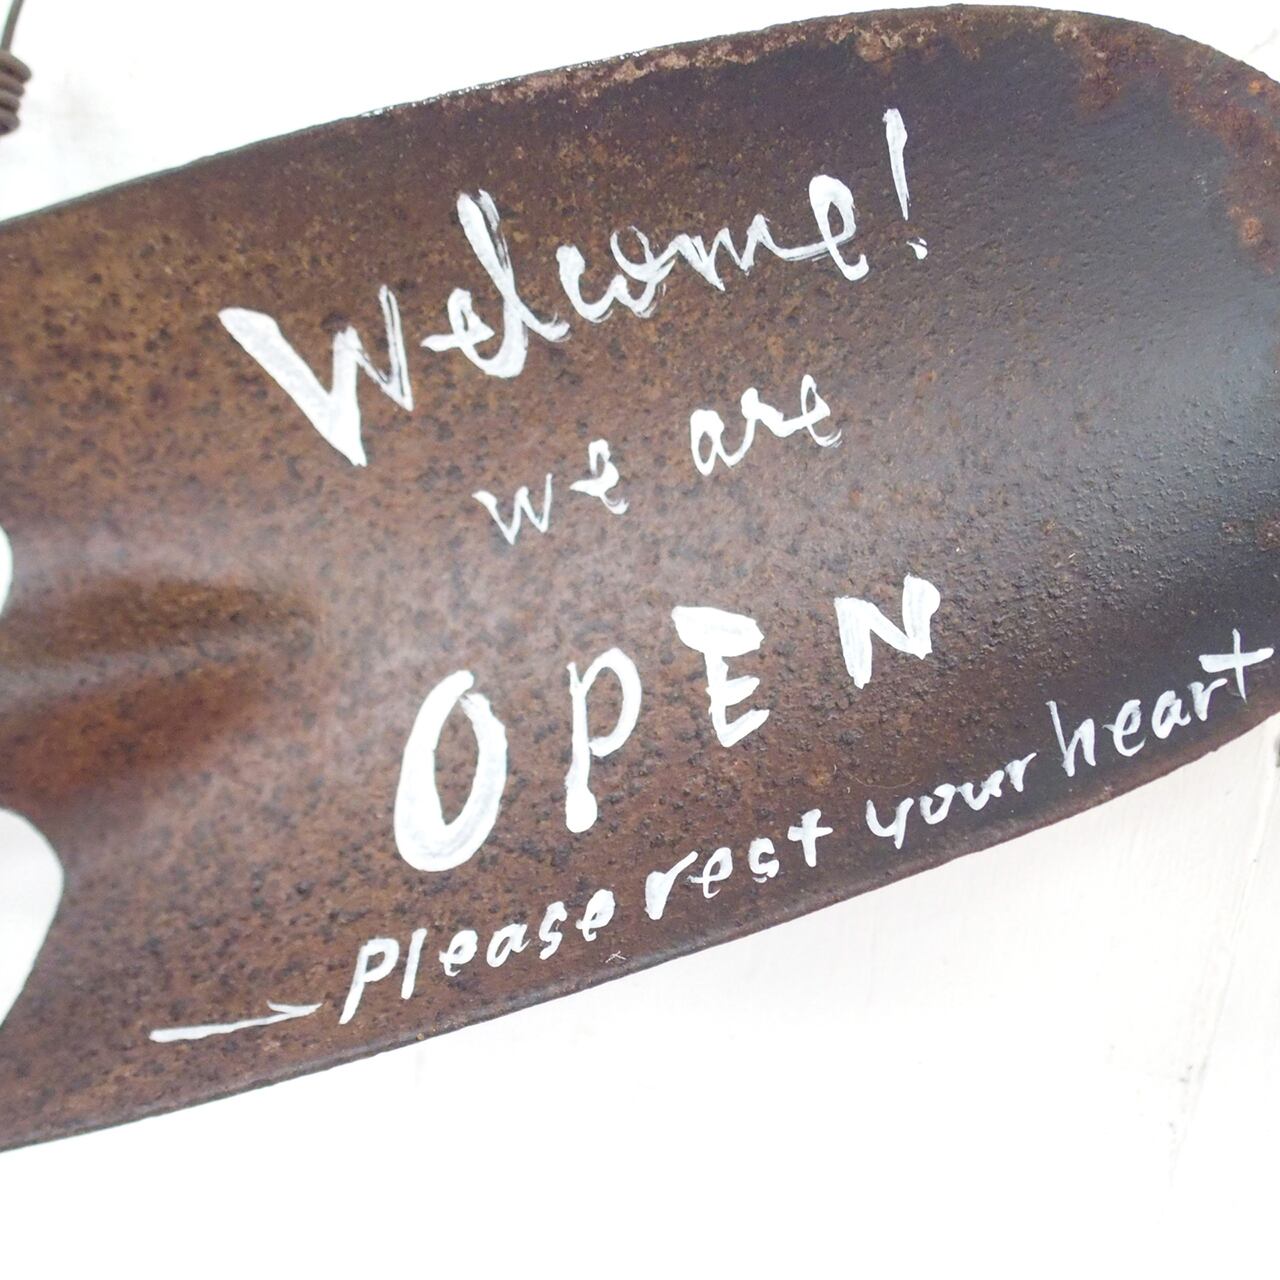 Welcome!
we are
OPEN
Please rest your heart